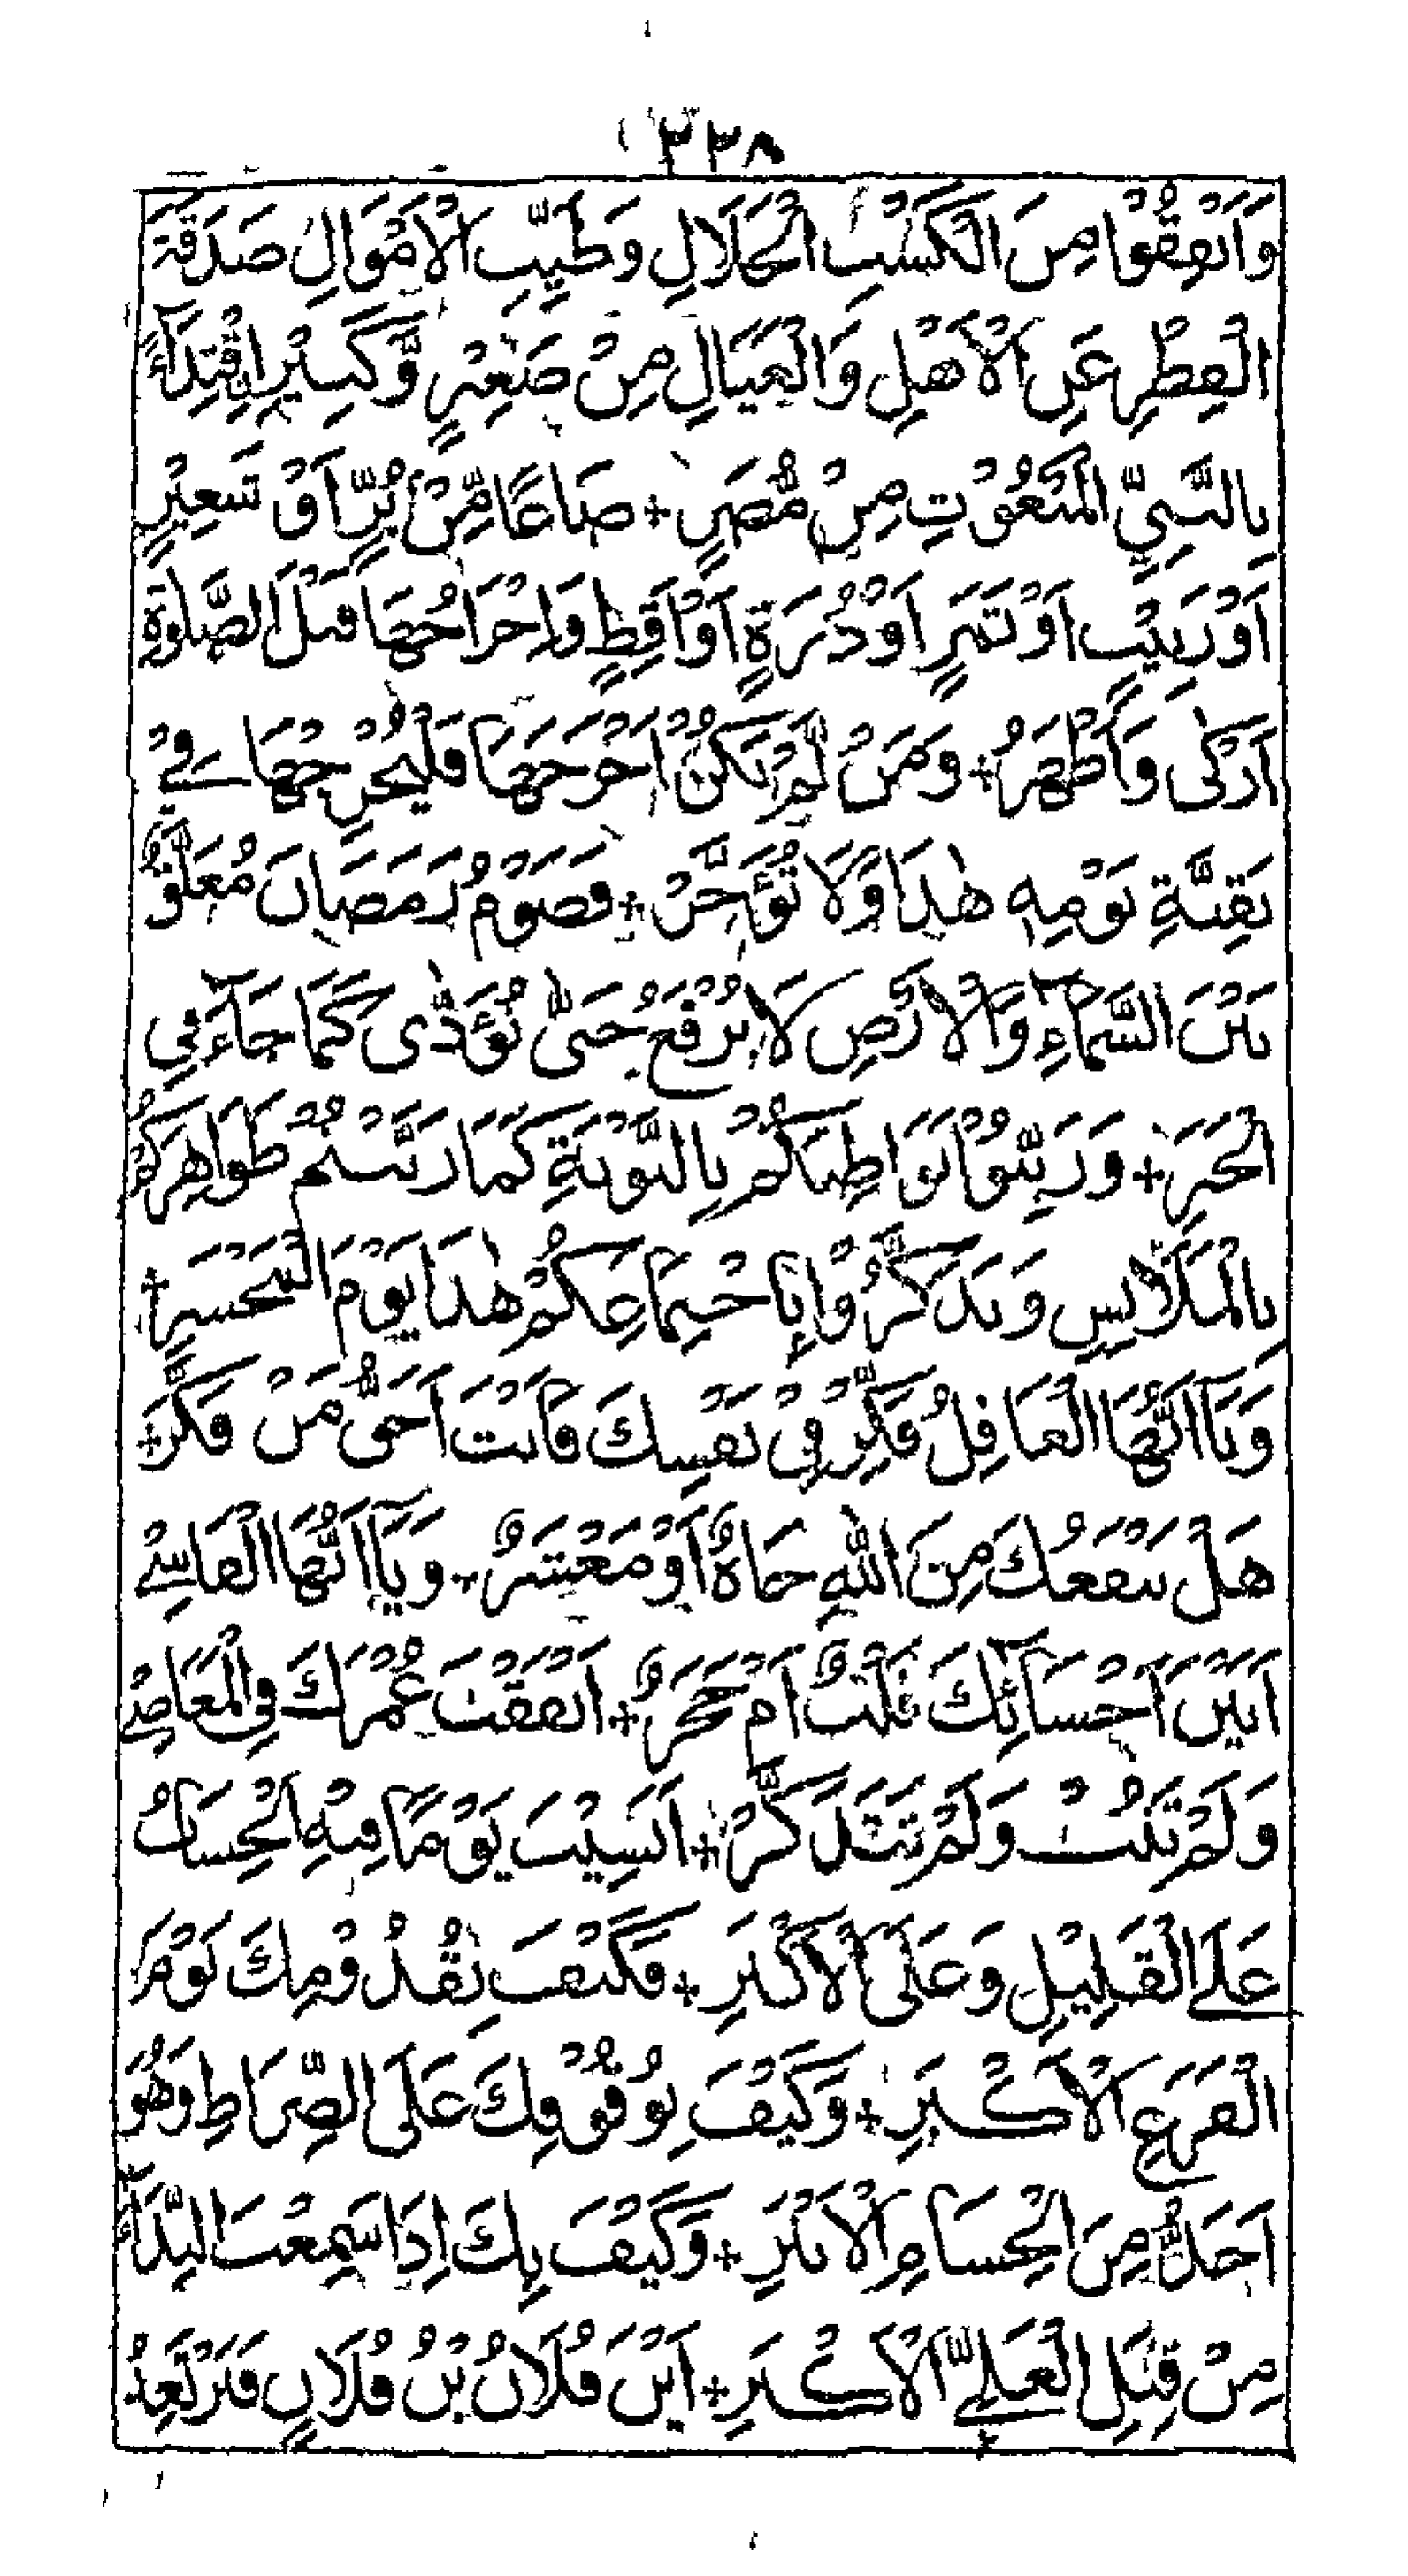 ٣٣٨
وَاَنْفِقُوْا مِنَ الْكَسْبِ الْحَلَالِ وَطَيِّبِ الْاَمْوَالِ صَدَقَةَ
الْفِطْرِ عَنِ الْاَهْلِ وَالْعِيَالِ مِنْ صَغِيْرٍ وَّكَبِيْرٍ اِقْتِدَآءً
بِالنَّبِيِّ الْمَنْعُوْتِ مِنْ مُّضَرٍ + صَاعًا مِّنْ بُرٍّ اَوْ شَعِيْرٍ
اَوْ زَبِيْبٍ اَوْ تَمَرٍ اَوْ ذُرَةٍ اَوْ اَقِطٍ وَاِخْرَاجُهَا قَبْلَ الصَّلٰوةِ
اَزْكٰى وَاَطْهَرُ + وَمَنْ لَّمْ يَكُنْ اَخْرَجَهَا فَلْيُخْرِجْهَا فِيْ
بَقِيَّةِ يَوْمِهٖ هٰذَا وَلَا تُؤَخِّرْ + فَصَوْمُ رَمَضَانَ مُعَلَّقٌ
بَيْنَ السَّمَآءِ وَالْاَرْضِ لَا يُرْفَعُ حَتّٰى تُؤَدّٰى كَمَا جَآءَ فِي
الْخَبَرِ + وَزَيِّنُوْا بَوَاطِنَكُمْ بِالتَّوْبَةِ كَمَا زَيَّنْتُمْ ظَوَاهِرَكُمْ
بِالْمَلَابِسِ وَتَذَكَّرُوْا بِاجْتِمَاعِكُمْ هٰذَا يَوْمَ الْمَحْشَرِ +
وَيَآ اَيُّهَا الْغَافِلُ فَكِّرْ فِيْ نَفْسِكَ فَاَنْتَ اَحَقُّ مَنْ فَكَّرَ +
هَلْ يَنْفَعُكَ مِنَ اللهِ جَاهٌ اَوْ مَعْشَرٌ + وَيَآ اَيُّهَا الْقَاسِيْ
اَيْنَ اَحْسَآئُكَ قَلْبٌ اَمْ حَجَرٌ + اَنْفَقْتَ عُمْرَكَ فِي الْمَعَاصِيْ
وَلَمْ تَتُبْ وَلَمْ تَتَذَكَّرْ + اَنَسِيْتَ يَوْمًا فِيْهِ الْحِسَابُ
عَلَى الْقَلِيْلِ وَعَلَى الْاَكْثَرِ + فَكَيْفَ بِقُدُوْمِكَ يَوْمَ
الْفَزَعِ الْاَكْبَرِ + وَكَيْفَ بِوُقُوْفِكَ عَلَى الصِّرَاطِ وَهُوَ
اَحَدُّ مِنَ الْحُسَامِ الْاَبْتَرِ + وَكَيْفَ بِكَ اِذَا سَمِعْتَ النِّدَآءَ
مِنْ قِبَلِ الْعَلِيِّ الْاَكْبَرِ + اَيْنَ فُلَانُ بْنُ فُلَانٍ فَتَرْتَعِدُ